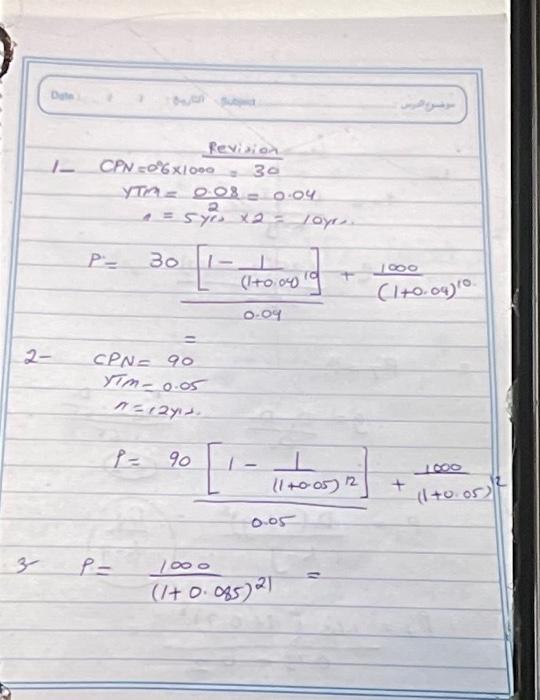 Date / / Subject موضوع الدرس
Revision
1- CPN = 0.06 x 1000 = 30
YTM = 0.08 / 2 = 0.04
n = 5 yrs x 2 = 10 yrs.
P = 30 [1 - 1 / (1+0.04)^10] / 0.04 + 1000 / (1+0.04)^10
=
2- CPN = 90
YTM = 0.05
n = 12 yrs.
P = 90 [1 - 1 / (1+0.05)^12] / 0.05 + 1000 / (1+0.05)^12
3- P = 1000 / (1+0.085)^21 =